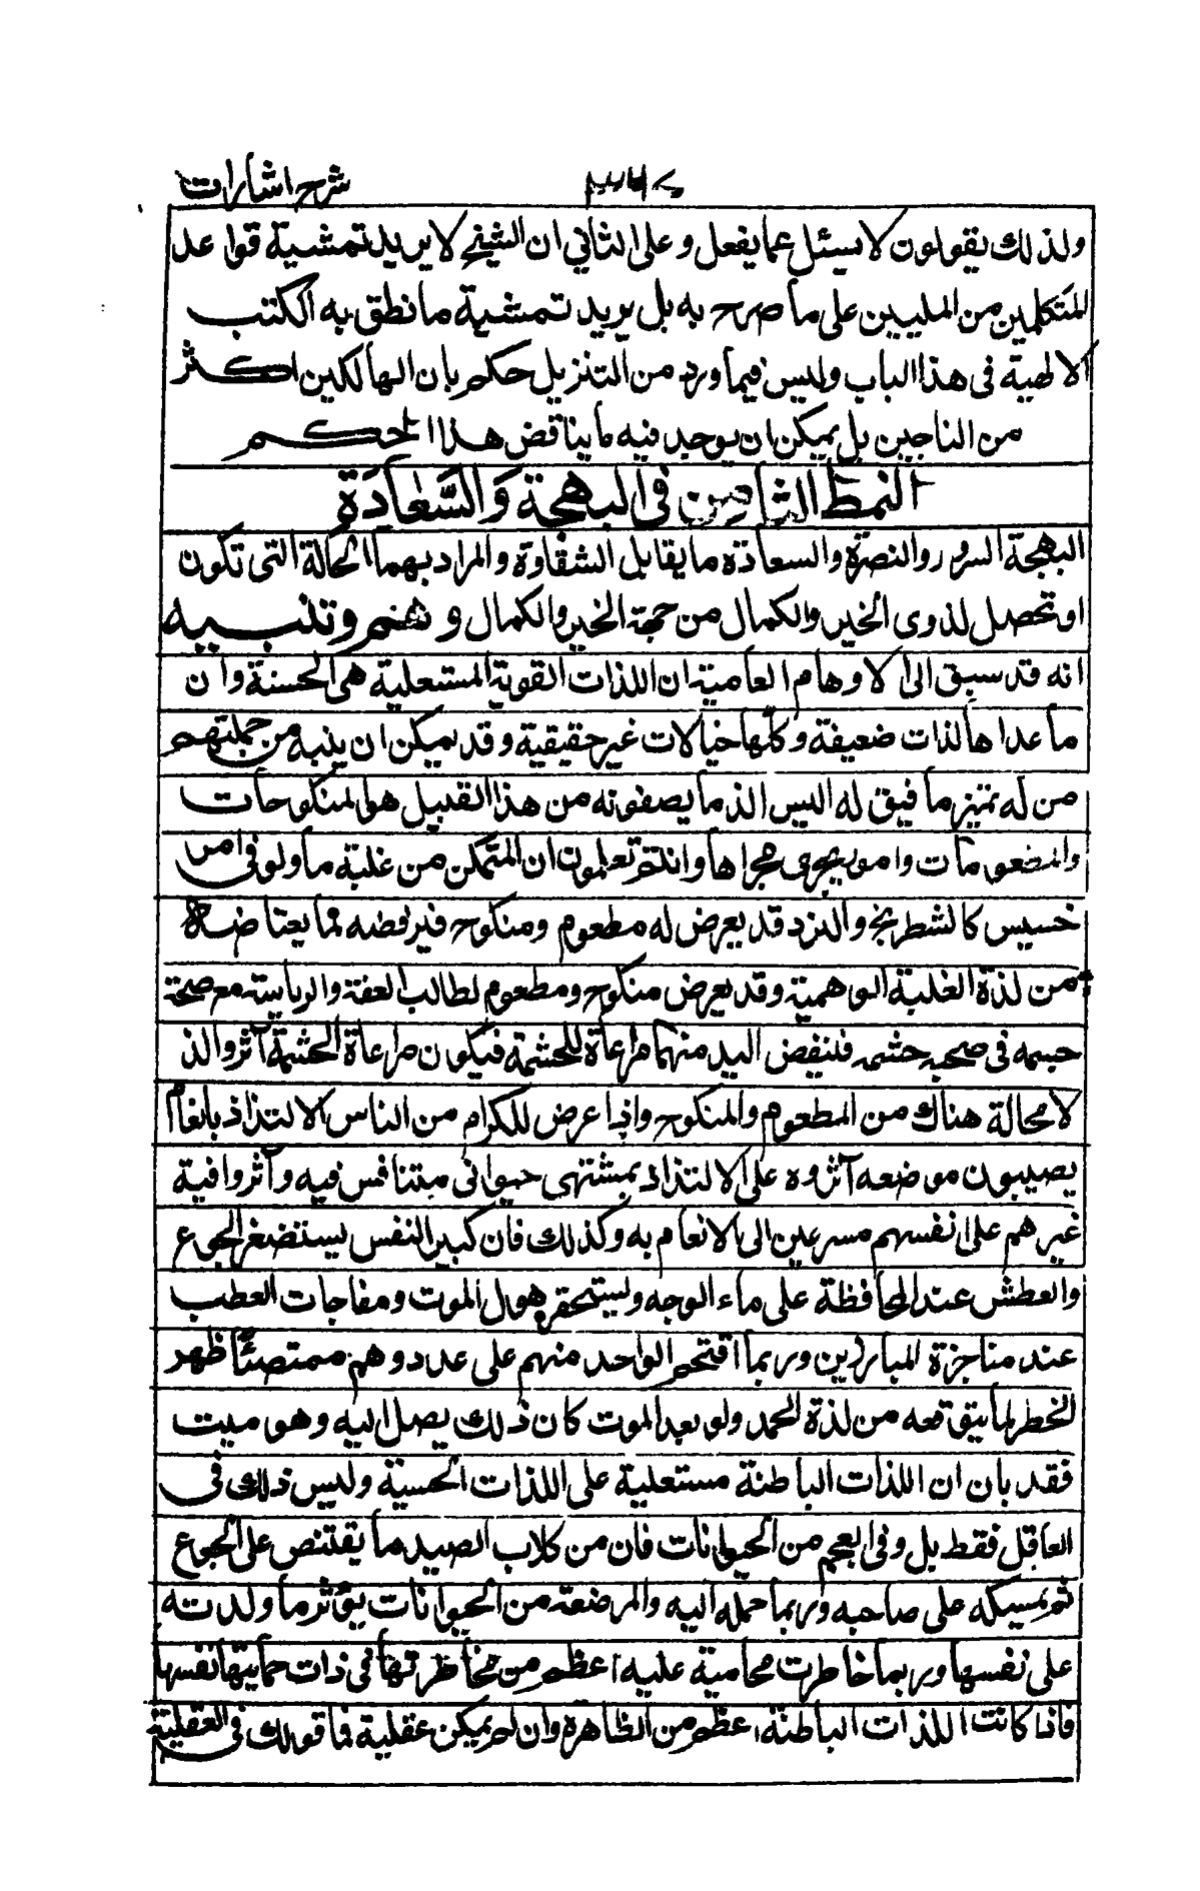 شرح اشارات
ولذلك يقولون لا يسئل عما يفعل وعلى الثاني ان الشيخ لا يريد تمشية قواعد
المتكلمين من المليين على ما صرح به بل يريد تمشية ما نطق به الكتب
الالهية فى هذا الباب وليس فيما ورد من التنزيل حكم بان الهالكين اكثر
من الناجين بل يمكن ان يوجد فيه ما يناقض هذا الحكم
النمط الثامن فى البهجة وَالسَّعَادَة
البهجة السرور والنضرة والسعادة ما يقابل الشقاوة والمراد بهما الحالة التى تكون
او تحصل لذوى الخير والكمال من جهة الخير والكمال وهم وتنبيه
انه قد سبق الى الاوهام العامية ان اللذات القوية المستعلية هى الحسنة وان
ما عداها لذات ضعيفة وكلها خيالات غير حقيقية وقد يمكن ان ينبه من جملتهم
من له تميز ما فيق له اليس الذ ما يصفونه من هذا القبيل هو المنكوحات
والمطعومات وامور يجرى مجراها وانتم تعلمون ان المتمكن من غلبة ما ولو فى امر
خسيس كالشطرنج والنرد قد يعرض له مطعوم ومنكوح فيرفضه لما يعتاضه
من لذة الغلبة الوهمية وقد يعرض منكوح ومطعوم لطالب العفة والرياسة مع صحة
جسمه فى صحبه حشمه فلينفض اليد منهما مراعاة للحشمة فيكون مراعاة الحشمة آثر والذ
لا محالة هناك من المطعوم والمنكوح واذا عرض للكرام من الناس الالتذاذ بانعام
يصيبون موضعه آثروه على الالتذاذ بمشتهى حيوانى متنافس فيه وآثروا فية
غيرهم على انفسهم مسرعين الى الانعام به وكذلك فان كبير النفس يستضغر الجوع
والعطش عند المحافظة على ماء الوجه ويستحقر هول الموت ومفاجات العطب
عند مناجزة المبارزين وربما اقتحم الواحد منهم على عدد وهم ممتصئاً ظهر
الخطر لما يتوقعه من لذة الحمد ولو بعد الموت كان ذلك يصل اليه وهو ميت
فقد بان ان اللذات الباطنة مستعلية على اللذات الحسية وليس ذلك فى
العاقل فقط بل وفى العجم من الحيوانات فان من كلاب الصيد ما يقتنص على الجوع
ثم يمسكه على صاحبه وربما حمله اليه والمرضعة من الحيوانات يؤثر ما ولدته
على نفسها وربما خاطرت محامية عليه اعظم من مخاطرتها فى ذات حمايتها نفسها
فاذا كانت اللذات الباطنة اعظم من الظاهرة وان لم يمكن عقلية فما قولك فى العقلية